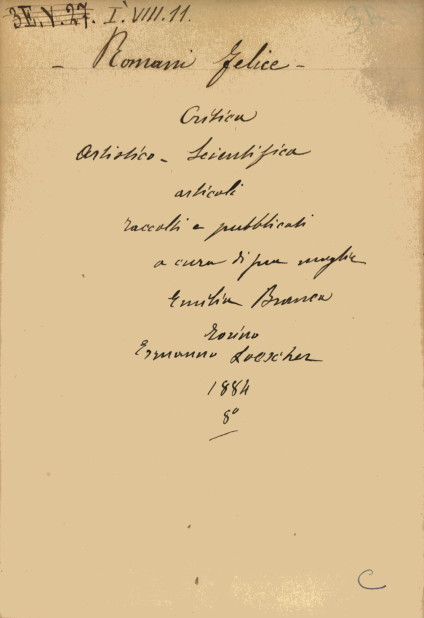 3E.V.27. I.VIII.11.
3E.
- Romani Felice -
Critica
Artistico - Scientifica
articoli
raccolti e pubblicati
a cura di sua moglie
Emilia Branca
Torino
Ermanno Loescher
1884
8°
C